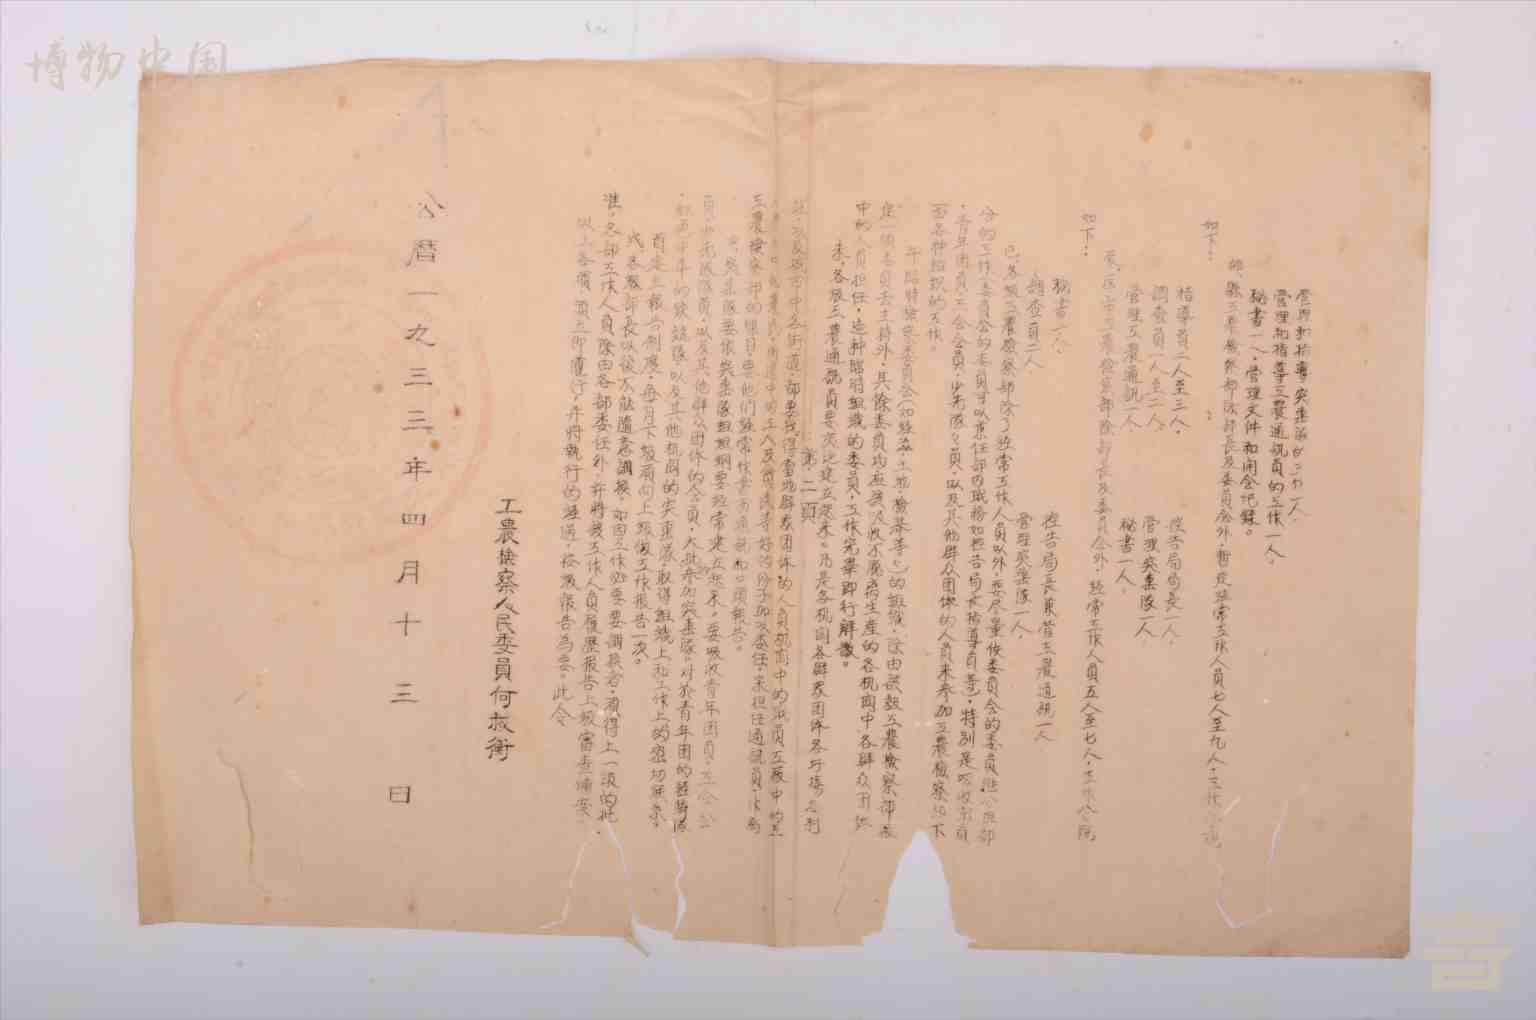 博物中国
管理和指导突击队的工作一人，
管理和指导工农通讯员的工作一人，
秘书一人，管理文件和开会纪录。
卯、县工农检察部除部长及委员会外，暂定经常工作人员七人至九人，工作分配
如下：
指导员二人至三人，控告局局长一人，
调查员一人至二人，管理突击队一人
管理工农通讯一人，秘书一人，
区、市工农检察部除部长及委员会外，经常工作人员五人至七人，工作分配
如下：
秘书一人，控告局长兼管工农通讯一人
调查员二人，管理突击队一人，
巳、各级工农检察部除了经常工作人员以外，要尽量使委员会的委员担负一部
分的工作，委员会的委员可以兼任部内职务如控告局长指导员等，特别是吸收党员
，青年团员，工会会员，少先队队员，以及其他群众团体的人员来参加工农检察部下
面各种组织的工作。
午、临时检察委员会（如经济，土地，检举等）的组织，除由该级工农检察部派
定一个委员去主持外，其余委员均应该吸收不脱离生产的各机关中，各群众团体
中的人员担任，这种临时组织的委员，工作完毕即行解散。
未、各级工农通讯员要实地建立起来，凡是各机关各群众团体各圩场各村
第二页
庄，以及城市中各街道，都要找得当地群众团体的人员机关中的职员工厂中的工
工农检察部的眼目，要他们经常作书面通讯和口头报告。
申、突击队要依突击队组织纲要经常建立起来，要吸收青年团员，工会会
员，少先队队员，以及其他群众团体的会员，大批参加突击队。对于青年团的轻骑队
首定工作报告制度，每月下级须向上级做工作报告一次。
戌、各级部长以后不能随意调换，如因工作必要要调换者，须得上一级的批
准，各部工作人员除由各部委任外，并将该工作人员履历报告上级审查备案。
以上各项，须立即遵行，并将执行的经过，按级报告为要。此令
工农检察人民委员何叔衡
公历一九三三年四月十三日